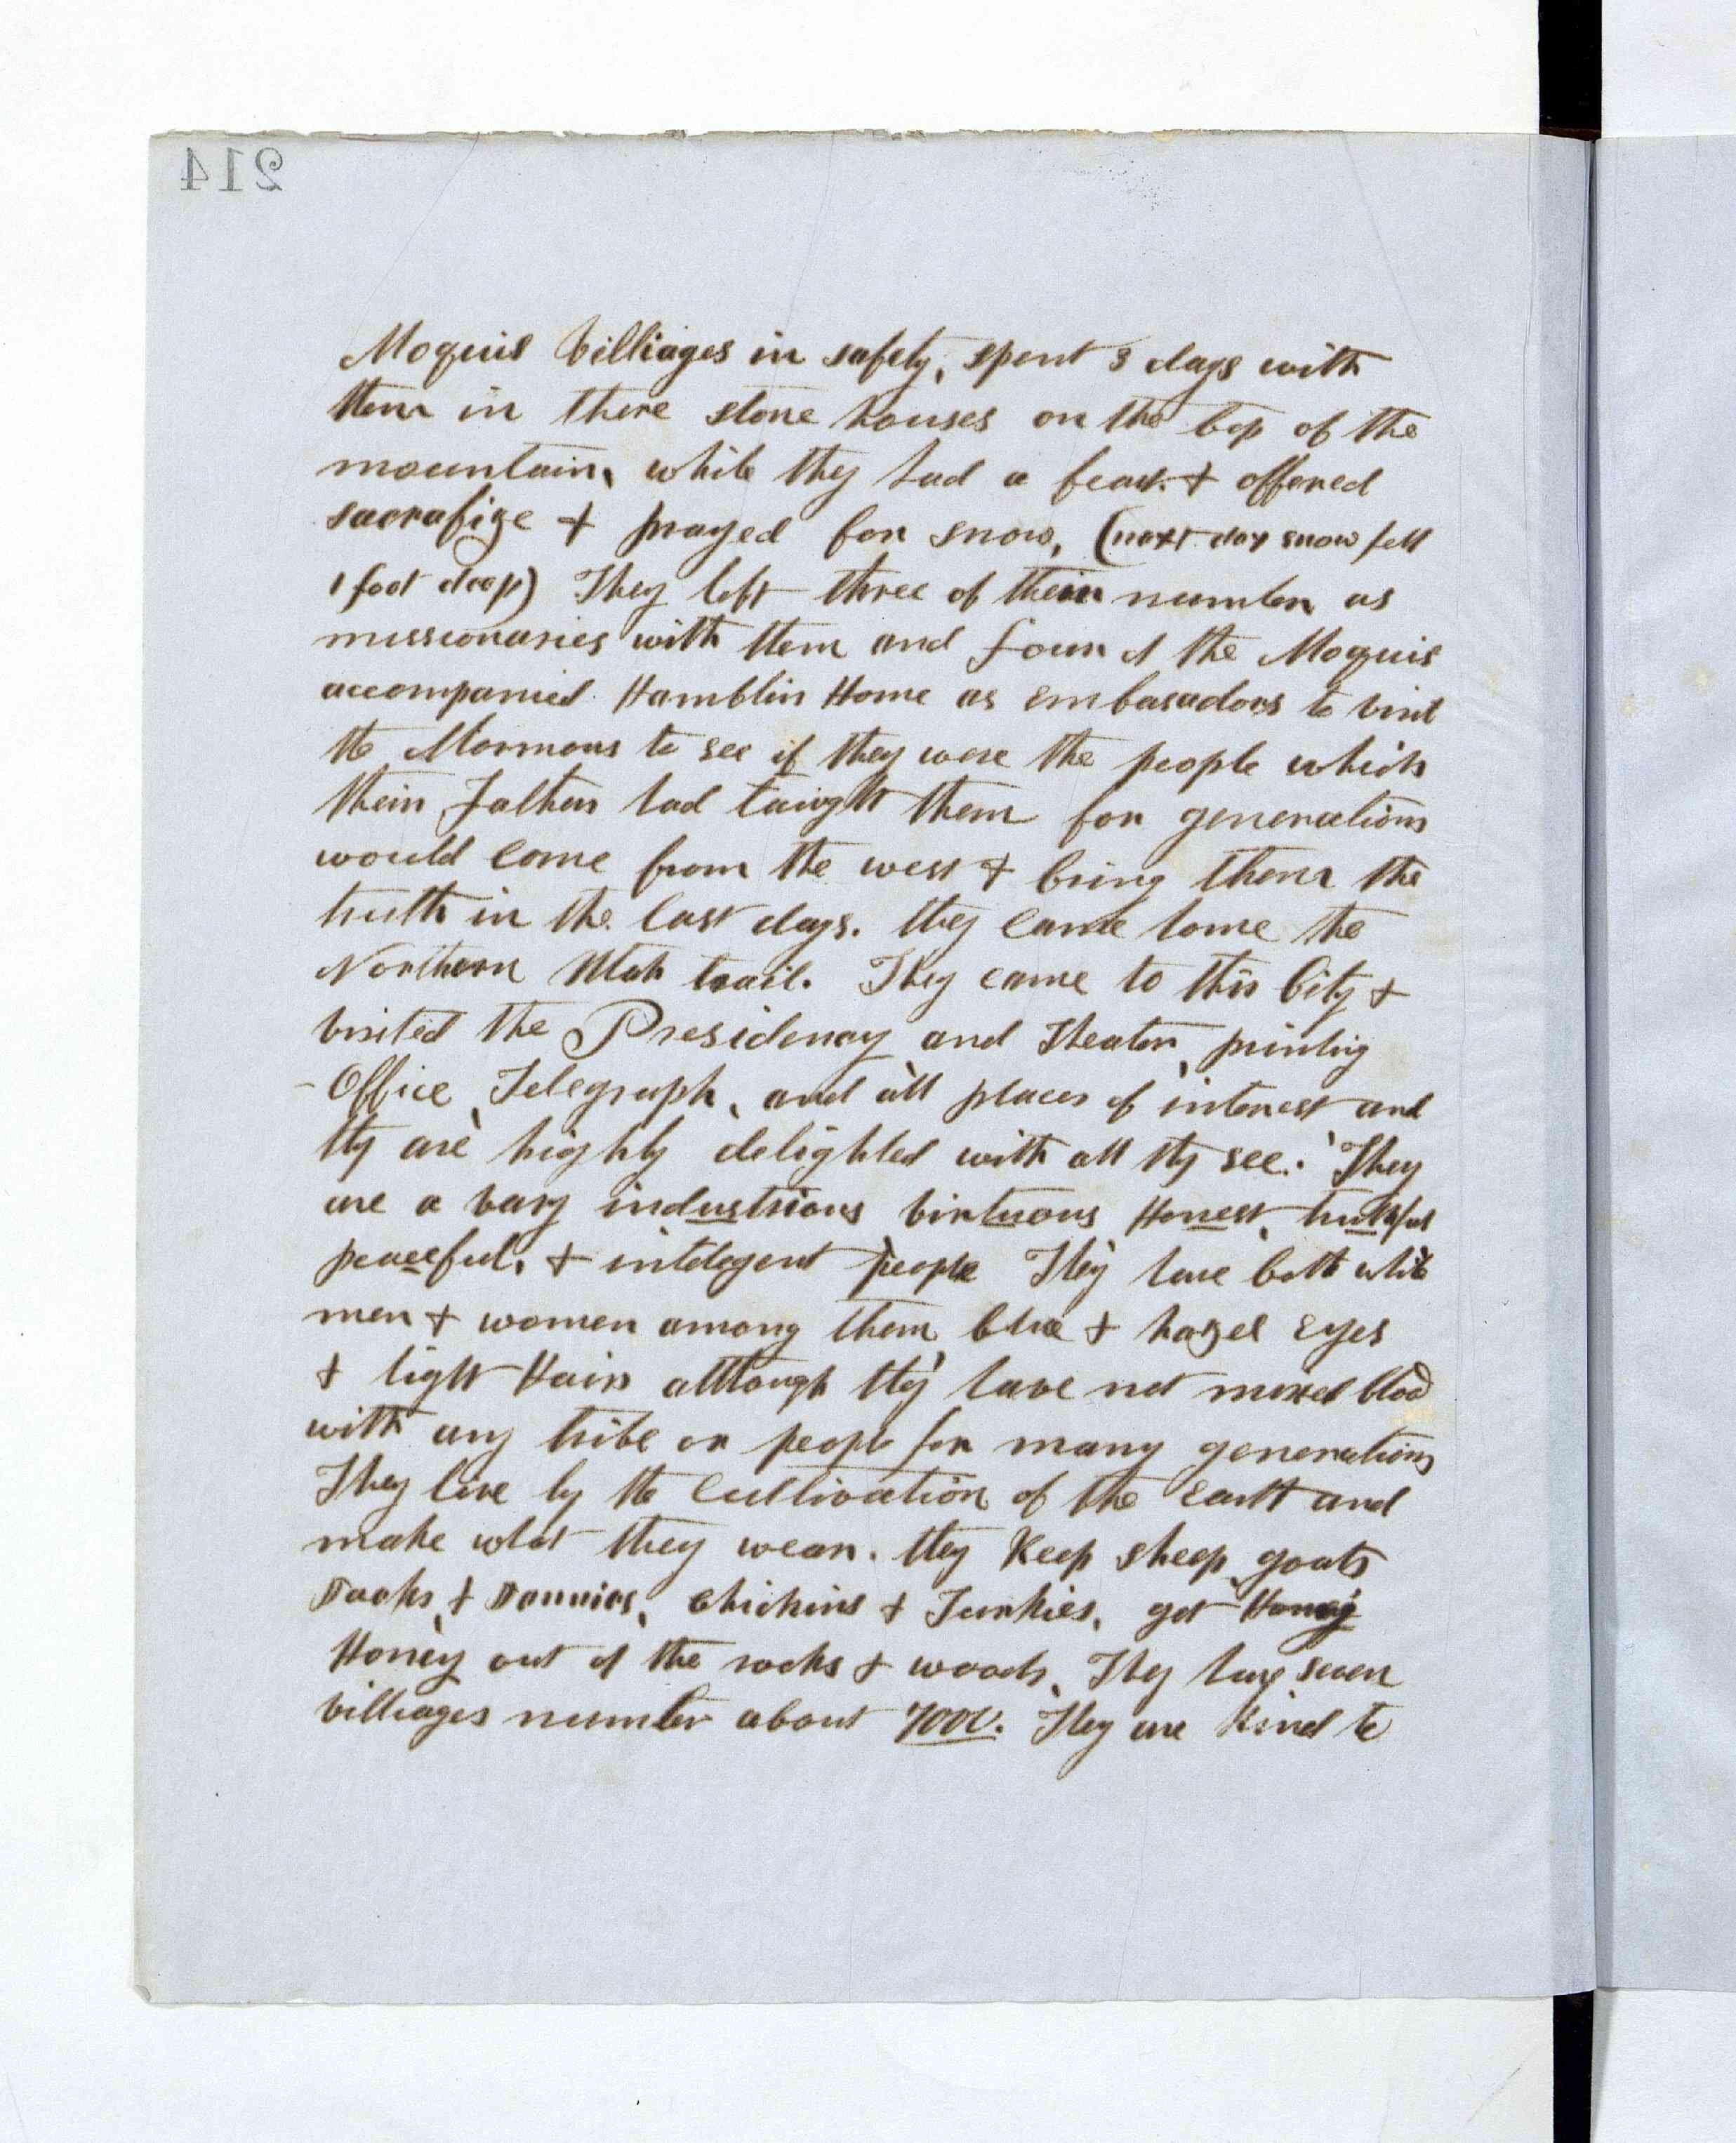 214
Moquis Villiages in safety, spent 3 days with
them in there stone houses on the top of the
mountain, while they had a feast & offered
sacrafize & prayed for snow, (next day snow fell
1 foot deep) They left three of their number as
missionaries with them and four of the Moquis
accompanied Hamblin Home as Embasadors to visit
the Mormons to see if they were the people which
their Fathers had taught them for generations
would come from the west & bring them the
truth in the last days. they came home the
Northern Utah trail. They came to this City &
visited the Presidency and Theater, printing
-Office, Telegraph, and all places of interest and
they are highly delighted with all they see. They
are a vary industrious virtuous Honest, truthful
peaceful, & intelegent people They have both white
men & women among them, blue & hazel Eyes
& light Hair although they have not mixed blood
with any tribe or people for many generations
They live by the Cultivation of the Earth and
make what they wear. they Keep sheep, goats
Jacks, & Jennies, Chickins & Turkies, get Honey
Honey out of the rocks & woods, They have seven
villiages number about 7000. They are Kind to